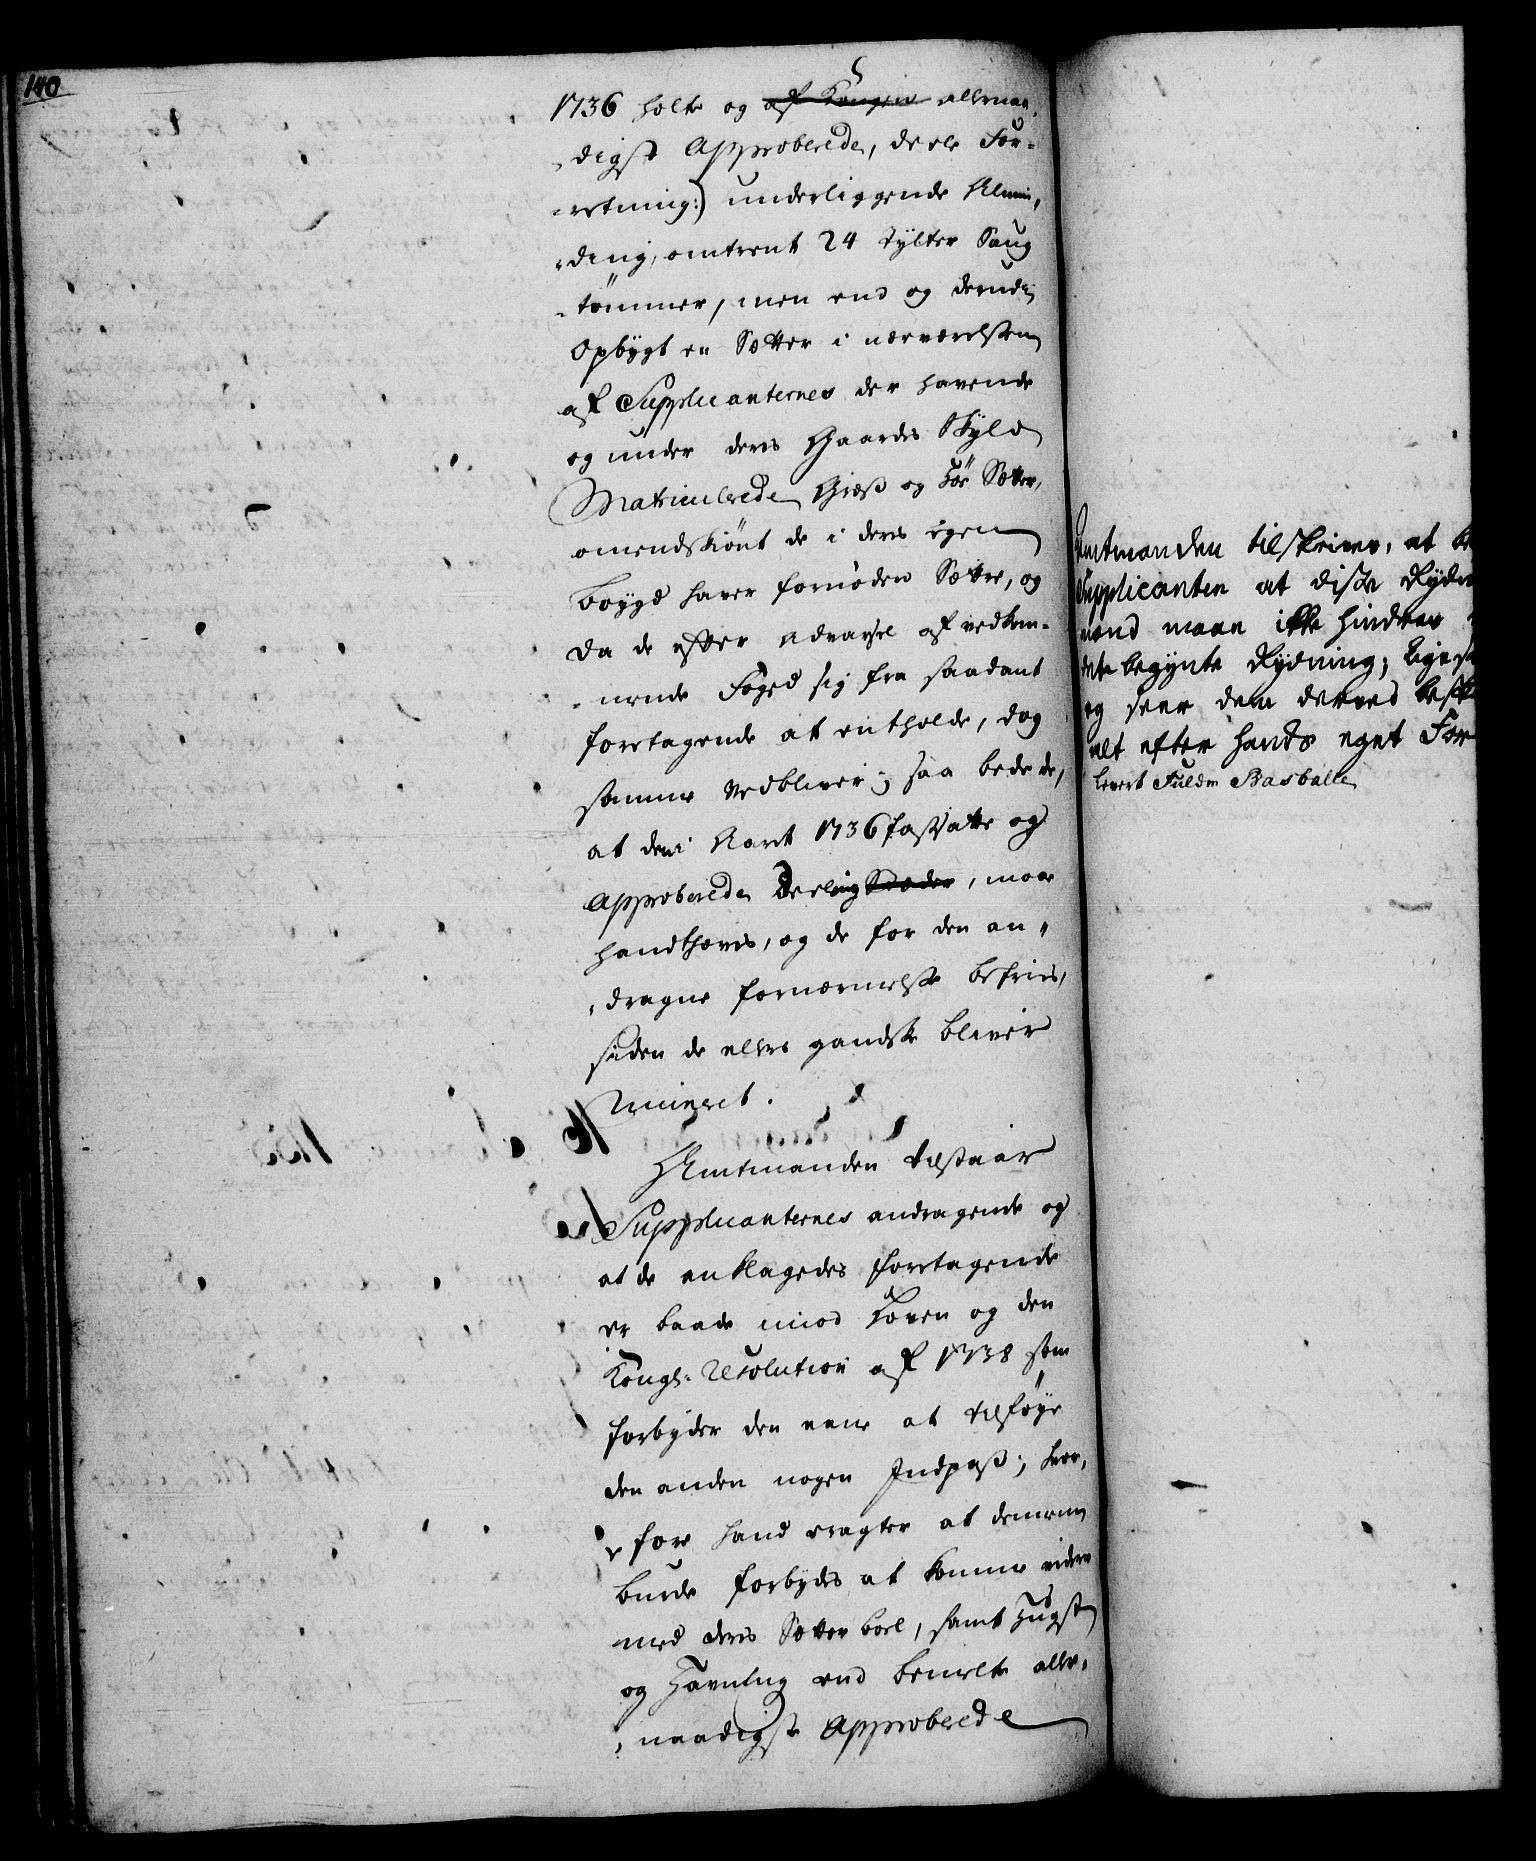 140
1736 holte og af Kongen allernaa-
digst Approberede, deele For-
retning:) underliggende Almin-
ding, omtrent 24 Tylter Saug
tømmer, men end og derudi
Opbygt en Sætter i nærværelsen
af Supplicanternes der havende
og under deres Gaardes Skyld
Matriculerede Græß og Sætter,
omendskiønt de i deres egen
bøygd haver fornøden Sætter, og
da de efter Advarsel af vedkom-
mende Foged sig fra saadant
foretagende at entholde, dog
samme vedbliver; saa bede de,
at den i Aaret 1736 fastsatte og
Approberede Deeling, maae
handthæves, og de for den an-
dragne fornærmelse befries,
siden de ellers gandske bliver
Ruineret.
Amtmanden tilstaar
Supplicanternes andragende og
at de anklagedes foretagende
er baade imod Loven og den
Kongl: Resolution af 1738 som
forbyder den eene at tilføye
den anden nogen Indpaß; hvor-
fore hand eragter at dennem
burde forbydes at komme videre
med deres Sætter boel, samt Hugst
og Havning end bemelte aller-
naadigste Approberede
Amtmanden tilskrives, at be
Supplicanten at diße Rydn
mænd maae ikke hindres
dete begynte Rydning; ligesa
og seer dem derved besk
alt efter hands eget For
levert Fuldm Basballe